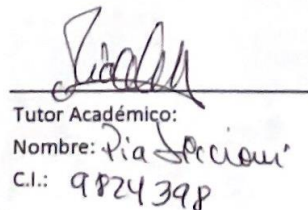 Tutor Académico:
Nombre: Pia
C.I.: 9824398